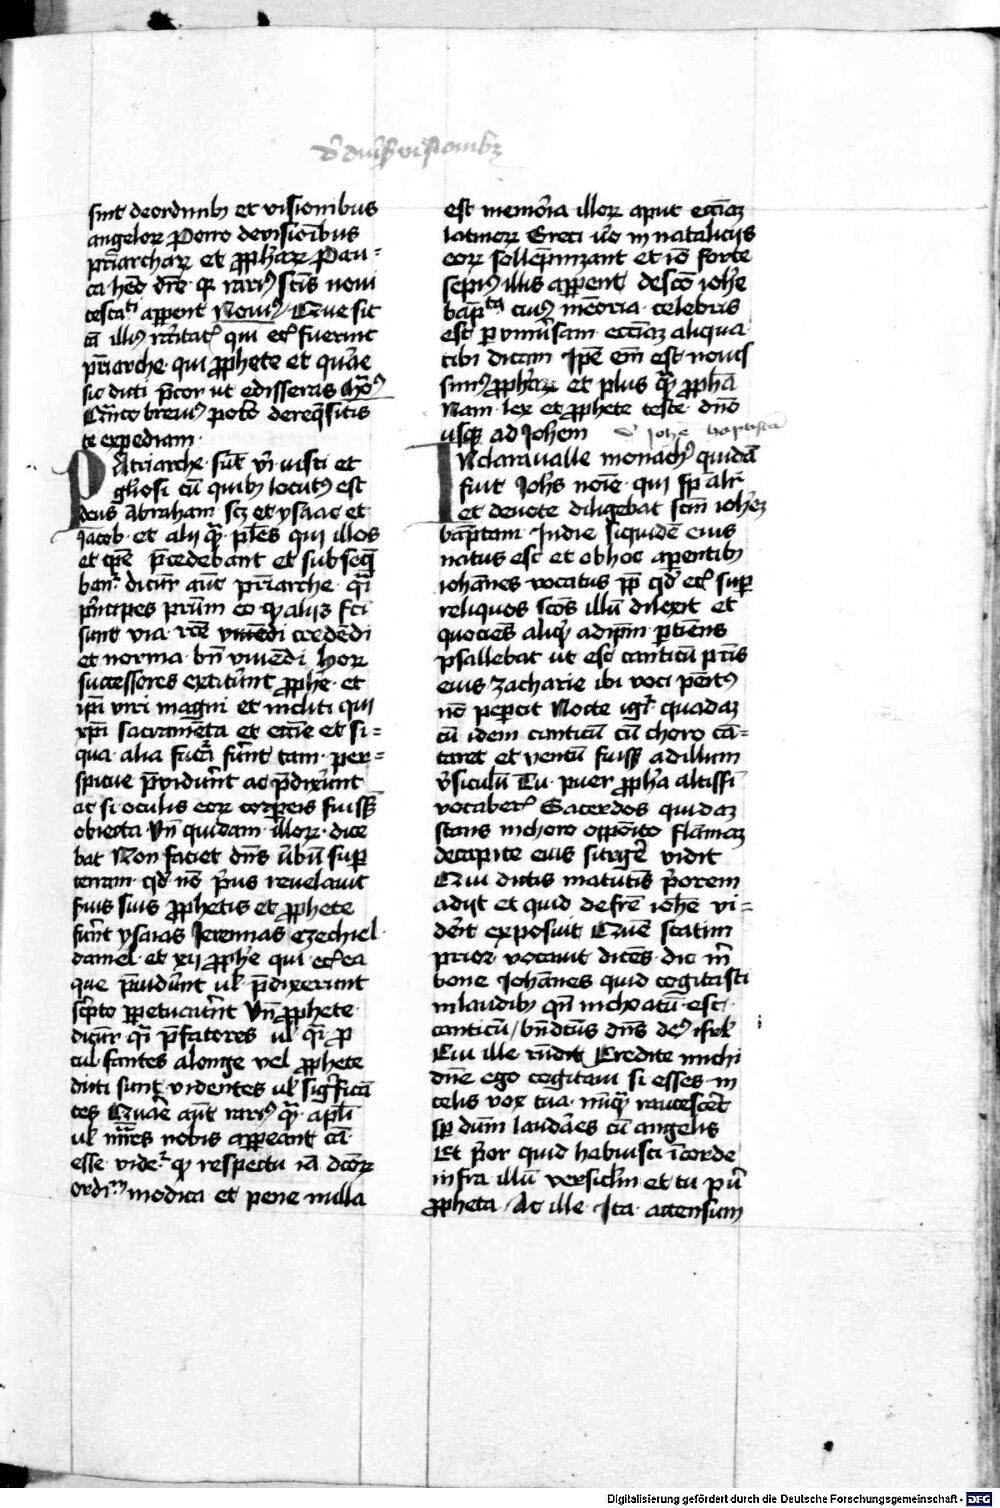 sunt de ordinib3 et visionibus
angelor Porro de visionibus
priarchar et prophar Pau-
ca hec dicere quia rarius sctis noui
testati apperent Nouis Que sit
ca illius raritatis qui eciam fuerint
priarche qui prophete et quare
sic dicti precor ut edisseras Mo9
Quanto breuius potero de requisitis
te expediam
Patriarche sunt viri iusti et
gliosi cum quib3 locutus est
deus Abraham scz et ysaac et
Jacob et alij qui illos
et precedebant et subseq
bantur dicuntur autem priarche quasi
principes patrum eo quod alijs fci
sunt via credendi
et norma bn viuendi hor
successores extiterunt prophe et
ipi viri magni et incliti qui
xpi sacramenta et eccie et si-
qua alia futura fuerunt tam per-
spicue preuiderunt ac predixerunt
ac si oculis eor corporeis fuisset
obiecta Vn quidam illor dice
bat Non faciet dns verbum super
terram quod non prius reuelauit
suis prophetis et prophete
fuerunt ysaias Jeremias ezechiel
daniel et xij prophe qui eciam ea
que preuiderunt uel predixerunt
scripto perpetuauerunt Vn prophete
dicuntur quasi prefatores uel quasi pro
cul fantes a longe vel prophete
dicti sunt videntes uel significan
tes Quare autem rarius quam apli
uel mres nobis appeant ca
esse videtur quod respectu iam dictor
ordinum modica et pene nulla
est memoria illor aput ecciaz
latinor Greci vero in natalicijs
eor sollempnizant et ideo forte
sepius illis apperent de sco iohe
baptista cuius memoria celebris
est per vniuersam ecciaz aliqua
tibi dicam Ipse enim est nouis
simus prophar et plus quam propha
Nam lex et prophete teste dno
usque ad Johem de johe baptista
In claraualle monachus quidam
fuit Johs noie qui
et deuote diligebat scm iohez
baptam In die siquidem eius
natus est et ob hoc a parentib3
iohannes vocatus propter quod eciam super
reliquos scos illum dilexit et
quociens aliquid ad ipm pertinens
psallebat ut est canticum patris
eius zacharie ibi voci penitus
non pepercit Nocte igitur quadaz
cum idem canticum cum choro can-
taret et ventum fuisset ad illum
versiculum Tu puer propha altissi
vocaberis Sacerdos quidaz
stans in choro opposito flammaz
de capite eius surgere vidit
Qui dictis matutinis priorem
adijt et quid de fratre iohe vi-
derit exposuit Quem statim
prior vocauit dicens dic mi
bone Johannes quid cogitasti
in laudib3 quando inchoatum est
canticum bndictus dns deus isrel
Cui ille rndit Credite michi
dne ego cogitaui si esses in
celis vox tua nunquam raucesceret
semper deum laudares cum angelis
Et prior quid habuisti in corde
infra illum versiclm et tu puer
propheta At ille Ita accensum